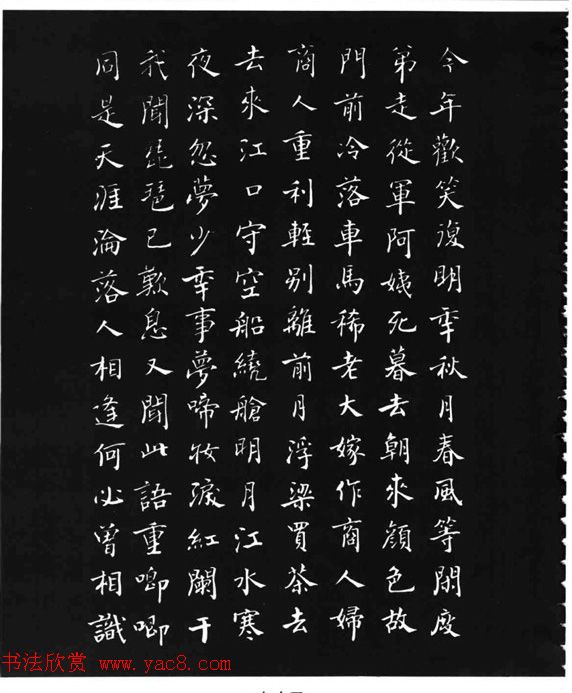 今年歡笑復明年秋月春風等閑度
弟走從軍阿姨死暮去朝來顔色故
門前冷落車馬稀老大嫁作商人婦
商人重利輕别離前月浮梁買茶去
去來江口守空船繞艙明月江水寒
夜深忽夢少年事夢啼妝淚紅闌干
我聞琵琶已歎息又聞此語重唧唧
同是天涯淪落人相逢何必曾相識
书法欣赏 www.yac8.com